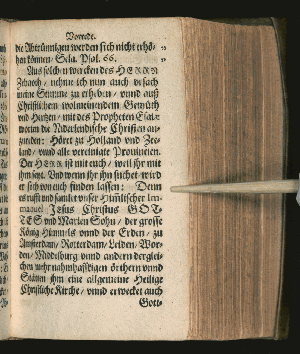 Vorrede.
die Abtrünnigen werden sich nicht erhö-
hen können / Sela. Psal. 66.
Aus solchen wercken des HERRN
Zebaoth / nehme ich nun auch ursach
meine Stimme zu erheben / unnd auß
Christlichem wolmeinendem Gemüth
und Hertzen / mit des Propheten Esaiæ
worten die Niderlendische Christen an-
zureden: Höret zu Holland und See-
land / unnd alle vereinigte Provintzien.
Der HERR ist mit euch / weil ihr mit
ihm seyt. Und wenn ihr ihn suchet / wird
er sich von euch finden lassen: Denn
es rufft und samlet unser Himlischer Im-
manuel Jesus Christus GOT-
TES und Marien Sohn / der grosse
König Himmels unnd der Erden / zu
Amsterdam / Rotterdam / Leiden / Wor-
den / Middelburg unnd andern derglei-
chen mehr nahmhafftigen örthern unnd
Stäten ihm eine allgemeine Heilige
Christliche Kirche / unnd erwecket auch
Gott-